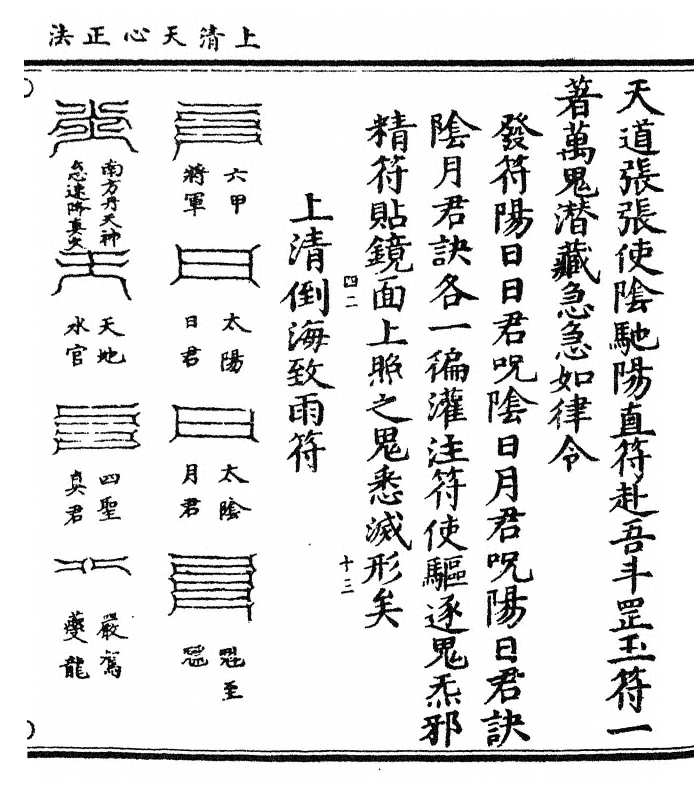 上清天心正法
天道張張使陰馳陽直符赴吾斗罡玉符一
著萬鬼潛藏急急如律令
發符陽日日君呪陰日月君呪陽日君訣
陰月君訣各一徧灌注符使驅逐鬼炁邪
精符貼鏡面上照之鬼悉滅形矣
四二
十三
上清倒海致雨符
六甲
將軍
太陽
日君
太陰
月君
魁至
南方丹天神
急速降真火
天地
水官
四聖
真君
嚴駕
夔龍